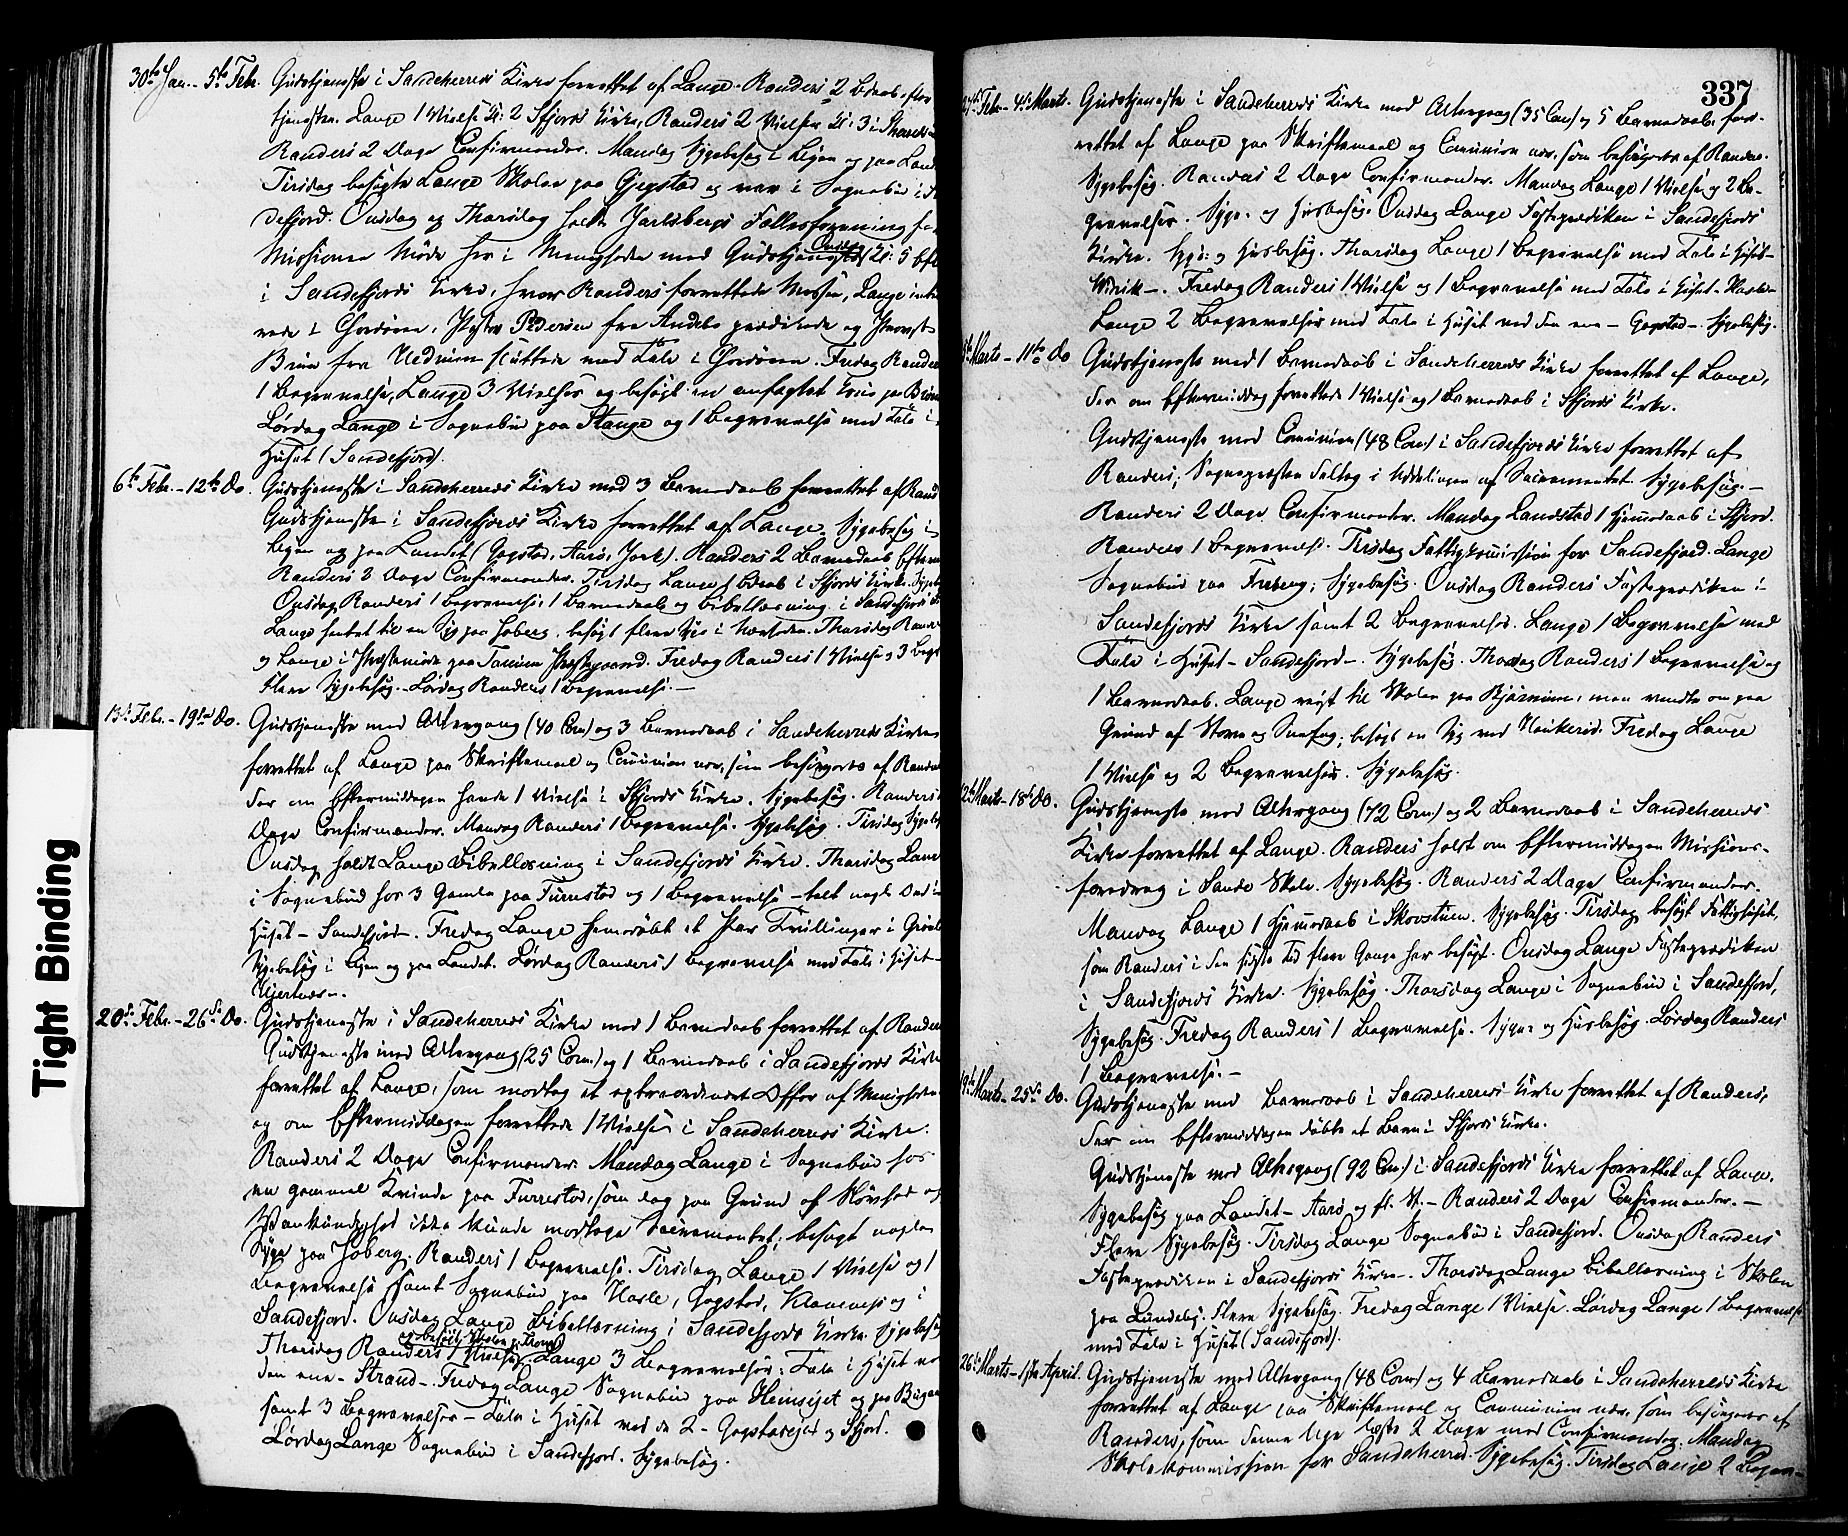 30te Jan. - 5te Febr. Gudstjeneste i Sandeherreds Kirke forrettet af Lange. Randers 2 Bdaab efter
tjenesten. Lange 1 Vielse Kl: 2 Sfjords Kirke, Randers 2 Vielser Kl: 3 i
Randers 2 Dage Confirmander. Mandag Sygebesøg i Byen og paa Land
Tirsdag besøgte Lange Skolen paa Gjegstad og var i Sognebud i
defjord. Onsdag og Thorsdag holdt Jarlsbergs Fællesforening fo
Missionen Møde her i Menigheden med Gudstjeneste Onsdag Kl: 5 Eft
i Sandefjords Kirke, hvor Randers forrettede Messen, Lange
rede i Chordøren, Pastor Pedersen fra Andebu prædikede og Provst
Bruun fra Hedrum sluttede med Tale i Chordøren. Fredag Randers
1 Begravelse, Lange 3 Vielser og besøgt en anfægtet Kone paa
Lørdag Lange i Sognebud paa Stange og 1 Begravelse med Tale i
Huset (Sandefjord).
6te Febr. - 12te Do. Gudstjeneste i Sandeherreds Kirke med 3 Barnedaab forrettet af Rand
Gudstjeneste i Sandefjords Kirke forrettet af Lange. Sygebesøg i
Byen og paa Landet (Gogstad, Aarø, ). Randers 2 Barnedaab Efterm
Randers 2 Dage Confirmander. Tirsdag Lange 1 Bdaab i Sfjords Kirke. Sygeb
Onsdag Randers 1 Begravelse, 1 Barnedaab og Bibellæsning i Sandefjords
Lange hentet til en Syg paa Hoberg, besøgt flere Syge i Nærheden. Thorsdag Rander
og Lange i Præstemøde paa Præstegaard. Fredag Randers 1 Vielse og 3 Begr
flere Sygebesøg. Lørdag Randers 1 Begravelse. -
13de Febr. - 19de Do. Gudstjeneste med Altergang (40 Com) og 3 Barnedaab i Sandeherreds Kirke
forrettet af Lange paa Skriftemaal og Communion nær, som besørgedes af Rander
der om Eftermiddagen havde 1 Vielse i Sfjords Kirke. Sygebesøg. Randers
Dage Confirmander. Mandag Randers 1 Begravelse. Sygebesøg. Tirsdag Sygeb
Onsdag holdt Lange Bibellæsning i Sandefjords Kirke. Thorsdag Lange
i Sognebud hos 3 Gamle paa Furrestad og 1 Begravelse - talt nogle Ord i
Huset - Sandefjord. Fredag Lange hjemdøbt et Par Tvillinger i
Sygebesøg i Byen og paa Landet. Lørdag Randers 1 Begravelse med Tale i Huset -
Hjertnæs -.
20de Febr. - 26de Do. Gudstjeneste i Sandeherreds Kirke med 1 Barnedaab forrettet af Rander
Gudstjeneste med Altergang (25 Com.) og 1 Barnedaab i Sandefjords Kirke
forrettet af Lange, som modtog et extraordinært Offer af Menigheden
og om Eftermiddagen forrettede 1 Vielse i Sandeherreds Kirke.
Randers 2 Dage Confirmander. Mandag Lange i Sognebud hos
en gammel Kvinde paa Furrestad, som dog paa Grund af Sløvhed og
Vankundighed ikke kunde modtage Sacramentet; besøgt nogle
Syge paa Hoberg. Randers 1 Begravelse. Tirsdag Lange 1 Vielse og 1
Begravelse samt Sognebud paa Hasle, Gogstad, Klavenes og i
Sandefjord. Onsdag Lange Bibellæsning i Sandefjords Kirke. Sygebesøg
Thorsdag Randers 1 Vielse og besøgt Skolen p. . Lange 3 Begravelser: Tale i Huset ve
den ene - Strand -. Fredag Lange Sognebud paa Heimsejet og paa
samt 3 Begravelser - Tale i Huset ved de 2 - og Sfjord.
Lørdag Lange Sognebud i Sandefjord. Sygebesøg.
337
27de Febr. - 4de Marts. Gudstjeneste i Sandeherreds Kirke med Altergang (35 Com) og 5 Barnedaab, for-
rettet af Lange paa Skriftemaal og Communion nær, som besørgedes af Randers.
Sygebesøg. Randers 2 Dage Confirmander. Mandag Lange 1 Vielse og 2 Be-
gravelser. Syge- og Husbesøg. Onsdag Lange Fasteprædiken i Sandefjords
Kirke. Syge- og Husbesøg. Thorsdag Lange 1 Begravelse med Tale i Huset -
-. Fredag Randers 1 Vielse og 1 Begravelse med Tale i Huset -
Lange 2 Begravelser med Tale i Huset ved den ene - Gogstad -. Sygebesøg.
5te Marts - 11te Do Gudstjeneste med 1 Barnedaab i Sandeherreds Kirke forrettet af Lange,
der om Eftermiddag forrettede 1 Vielse og 1 Barnedaab i Sfjords Kirke.
Gudstjeneste med Communion (48 Com) i Sandefjords Kirke forrettet af
Randers; Sognepræsten deltog i Uddelingen af Sacramentet. Sygebesøg. -
Randers 2 Dage Confirmander. Mandag Landstad 1 Hjemmedaab i Sfjord.
Randers 1 Begravelse. Tirsdag Fattigkommission for Sandefjord. Lange
Sognebud paa Freberg; Sygebesøg. Onsdag Randers Fasteprædiken i
Sandefjords Kirke samt 2 Begravelser. Lange 1 Begravelse med
Tale i Huset - Sandefjord -. Sygebesøg. Thorsdag Randers 1 Begravelse og
1 Barnedaab. Lange rejst til Skolen paa Bjørnum, men vendte om paa
Grund af Storm og Snefog; besøgt en Syg ved Haukerød. Fredag Lange
1 Vielse og 2 Begravelser. Sygebesøg.
12te Marts - 18de Do. Gudstjeneste med Altergang (72 Com) og 2 Barnedaab i Sandeherreds
Kirke forrettet af Lange. Randers holdt om Eftermiddagen Missions-
foredrag i Sande Skole. Sygebesøg. Randers 2 Dage Confirmander.
Mandag Lange 1 Hjemmedaab i Skovstuen. Sygebesøg. Tirsdag besøgt Fattighuset,
som Randers i den sidste Tid flere Gange har besøgt. Onsdag Lange Fasteprædiken
i Sandefjords Kirke. Sygebesøg. Thorsdag Lange i Sognebud i Sandefjord,
Sygebesøg. Fredag Randers 1 Begravelse. Syge- og Husbesøg. Lørdag Randers
1 Begravelse. -
19de Marts - 25de Do. Gudstjeneste med Barnedaab i Sandeherreds Kirke forrettet af Randers,
der om Eftermiddagen døbte et Barn i Sfjords Kirke.
Gudstjeneste med Altergang (92 Com) i Sandefjords Kirke forrettet af Lange.
Sygebesøg paa Landet - Aarø og fl. St. - Randers 2 Dage Confirmander. -
Flere Sygebesøg. Tirsdag Lange Sognebud i Sandefjord. Onsdag Randers
Fasteprædiken i Sandefjords Kirke. Thorsdag Lange Bibellæsning i Skolen
paa Lundeby. Flere Sygebesøg. Fredag Lange 1 Vielse. Lørdag Lange 1 Begravelse
med Tale i Huset (Sandefjord).
26de Marts - 1ste April. Gudstjeneste med Altergang (48 Com) og 4 Barnedaab i Sandeherreds Kirke
forrettet af Lange paa Skriftemaal og Communion nær, som besørgedes af
Randers, som denne Uge læste 2 Dage med Confirmander. Mandag
Skolekommission for Sandeherred. Sygebesøg. Tirsdag Lange 2 Begra-
Tight Binding